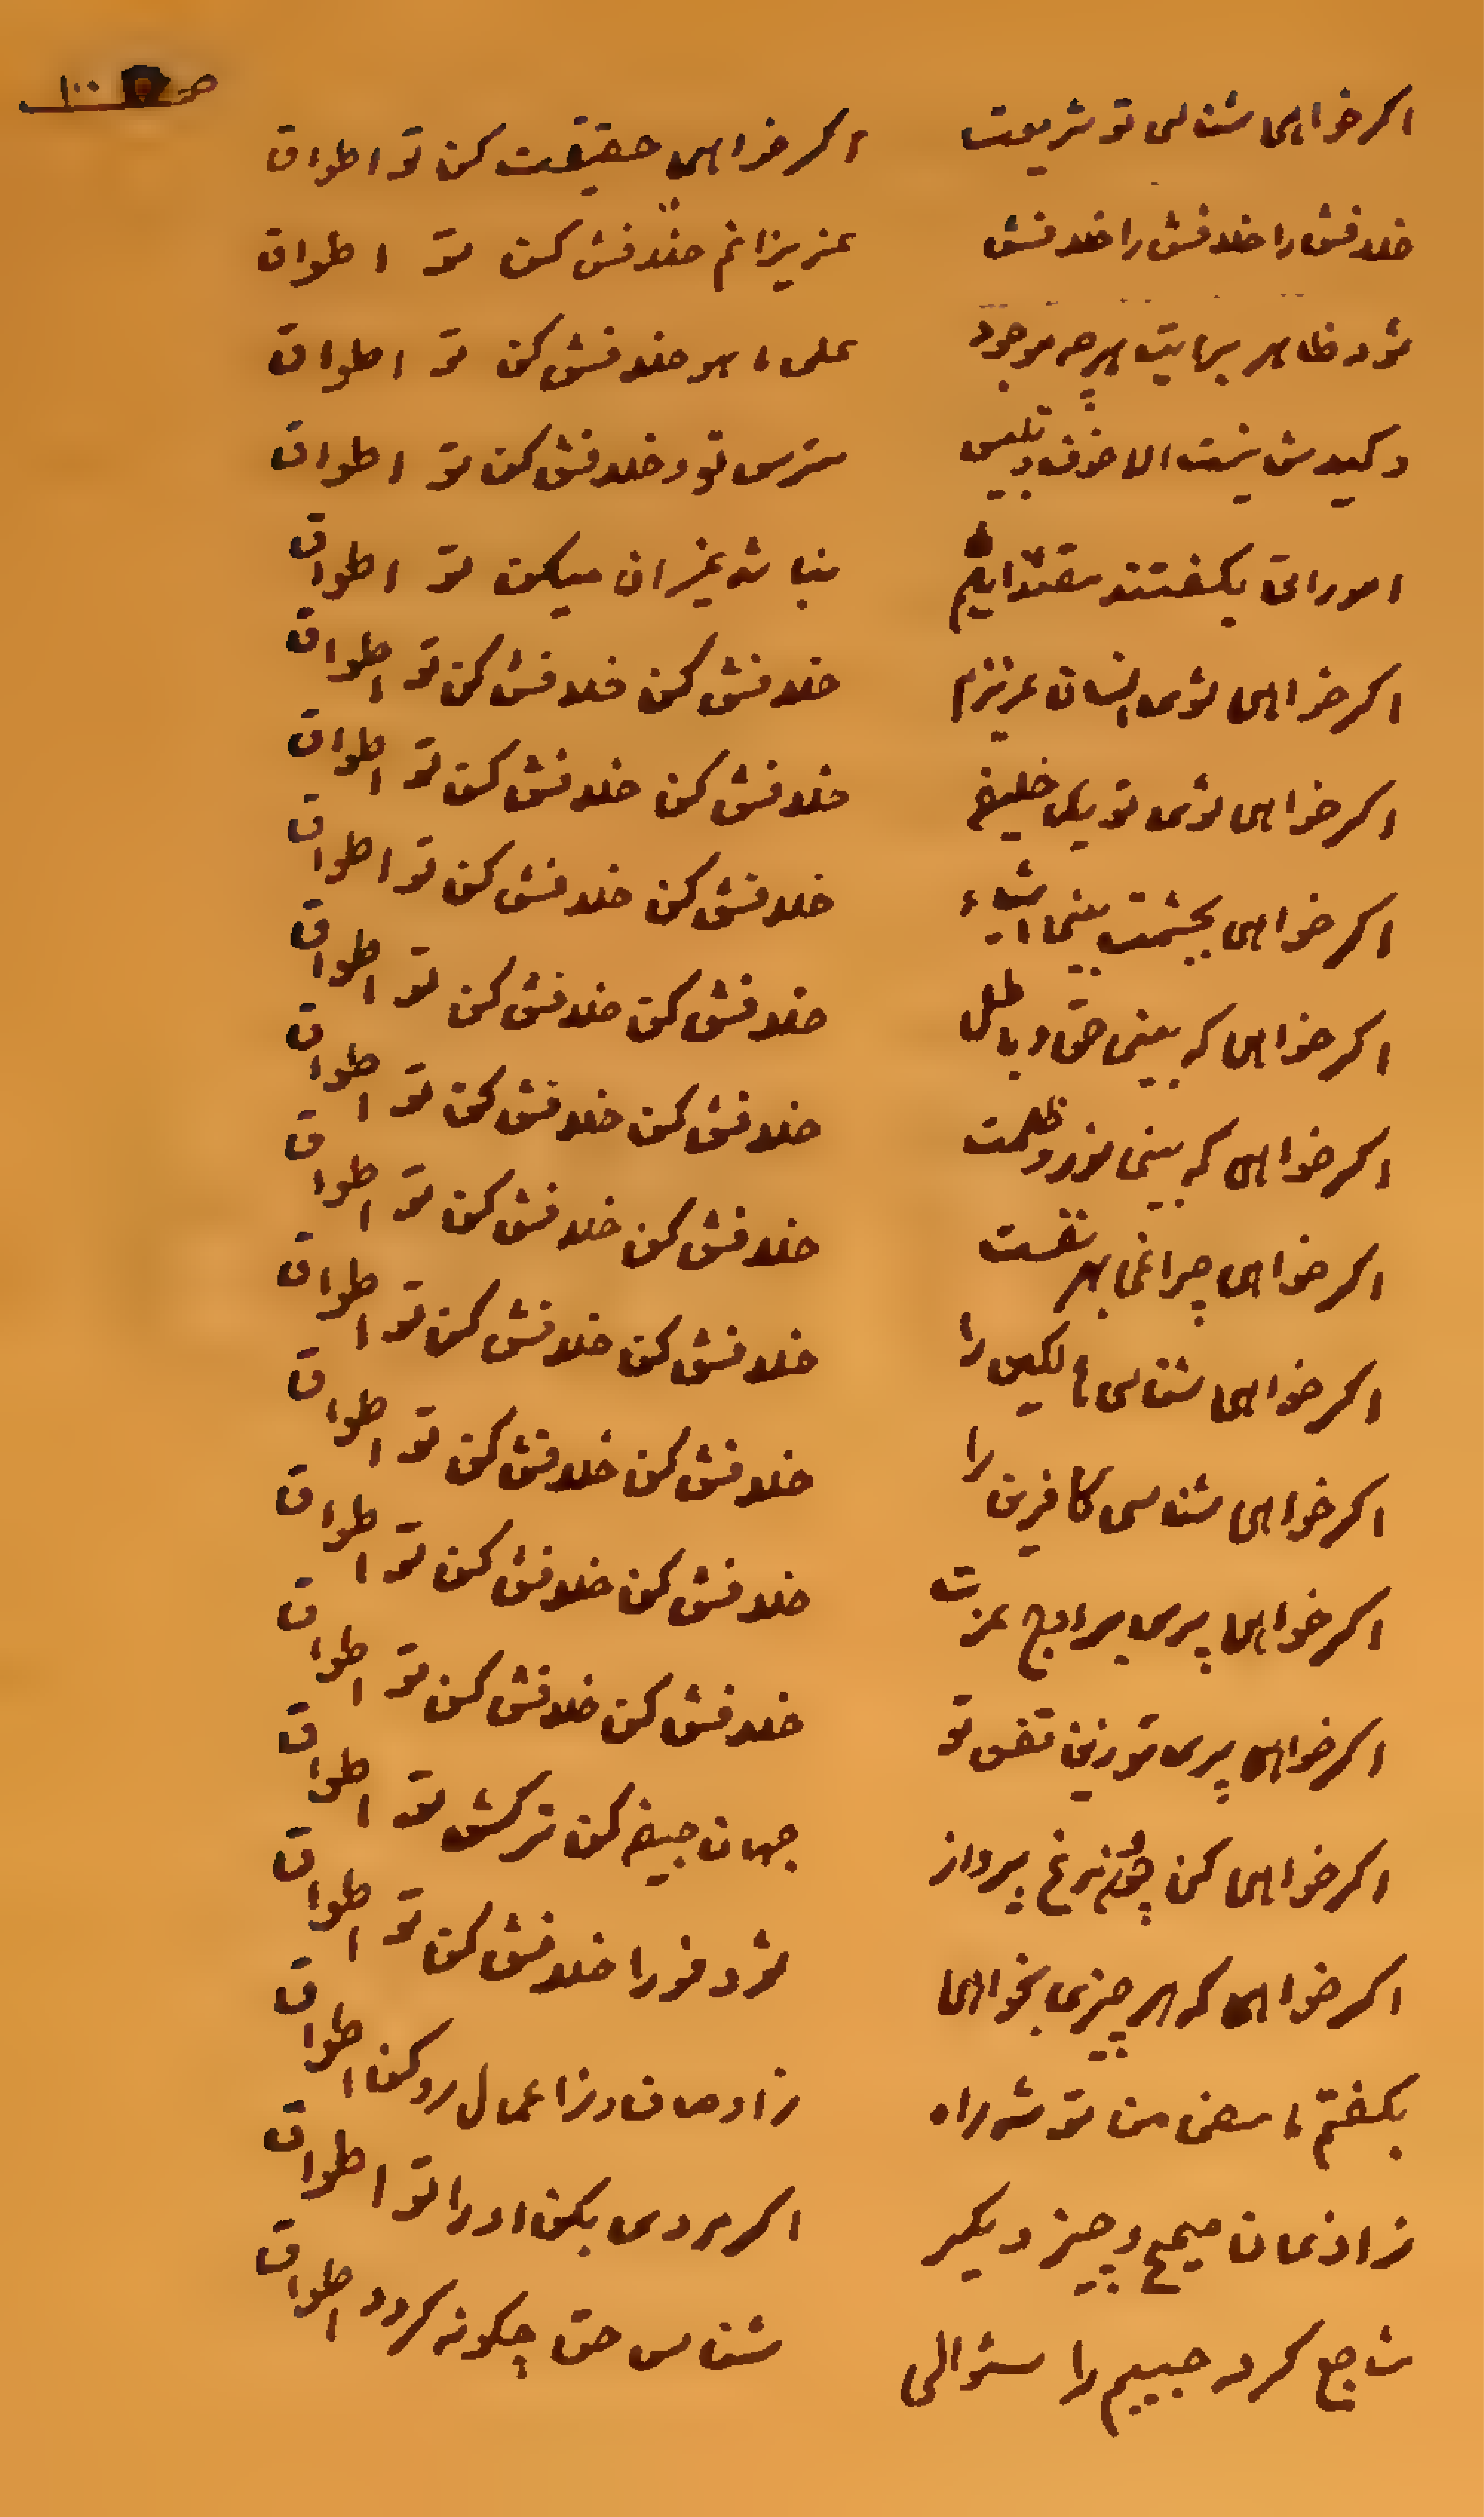 صـ ١٠٠
اکر خواهی شناسی تو شریعت
اکر خواهی حقیقت کن تو اطواق
خلد فش را خلد فش را خلد فش
عزیزانم خلد فش کن تو اطواق
شود ظاهر برایت هرچه موجود
علی هو خلد فش کن تو اطواق
و کیدش نیست الا خوف و تلبیس
مترس تو و خلد فش کن تو اطواق
امور اتی بکفتند مقتدایم
تو اطواق
اکر خواهی شوی انسان عزیزم
خلد فش کن خلد فش کن تو اطواق
اکر خواهی شوی تو یکی خلیفه
خلد فش کن خلد فش کن تو اطواق
اکر خواهی بچشمت بینی اشیاء
خلد فش کن خلد فش کن تو اطواق
اکر خواهی که بینی حق و باطل
خلد فش کن خلد فش کن تو اطواق
اکر خواهی که بینی نور و ظلمت
خلد فش کن خلد فش کن تو اطواق
اکر خواهی چراغی بهر نفست
خلد فش کن خلد فش کن تو اطواق
اکر خواهی شناسی مالکین را
خلد فش کن خلد فش کن تو اطواق
اکر خواهی شناسی کافرین را
خلد فش کن خلد فش کن تو اطواق
اکر خواهی پری بر اوج عزت
خلد فش کن خلد فش کن تو اطواق
اکر خواهی پری تو زین قفس تو
خلد فش کن خلد فش کن تو اطواق
اکر خواهی کنی چون مرغ پرواز
جهان جیفه کن ترکش تو اطواق
اکر خواهی که هر چیزی بخواهی
شود فورا خلد فش کن تو اطواق
بکفتم من توشه راه
ز اوصاف و ز اعمال رو کن اطواق
ز اذعان صحیح و چیز دیکر
اکر مردی بکن او را تو اطواق
کرد حبیبم را سئوالی
شناس حق چکونه کردد اطواق